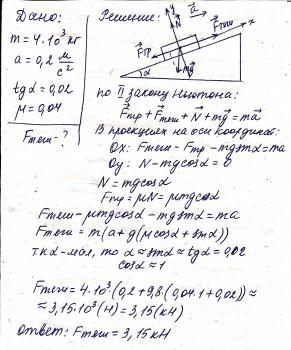 Дано:
m = 4·10³ кг
a = 0,2 м/с²
tgα = 0,02
μ = 0,04
Fтяги - ?
Решение:
y
N
a
Fтяги
x
Fтр
α
mg
по II закону Ньютона:
Fтр + Fтяги + N + mg = ma
В проекциях на оси координат:
Ox: Fтяги - Fтр - mgsinα = ma
Oy: N - mgcosα = 0
N = mgcosα
Fтр = μN = μmgcosα
Fтяги - μmgcosα - mgsinα = ma
Fтяги = m(a + g(μcosα + sinα))
т.к α-мал, то α ≈ sinα ≈ tgα = 0,02
cosα ≈ 1
Fтяги = 4·10³·(0,2 + 9,8(0,04·1 + 0,02)) ≈
≈ 3,15·10³(Н) = 3,15(кН)
ответ: Fтяги = 3,15 кН